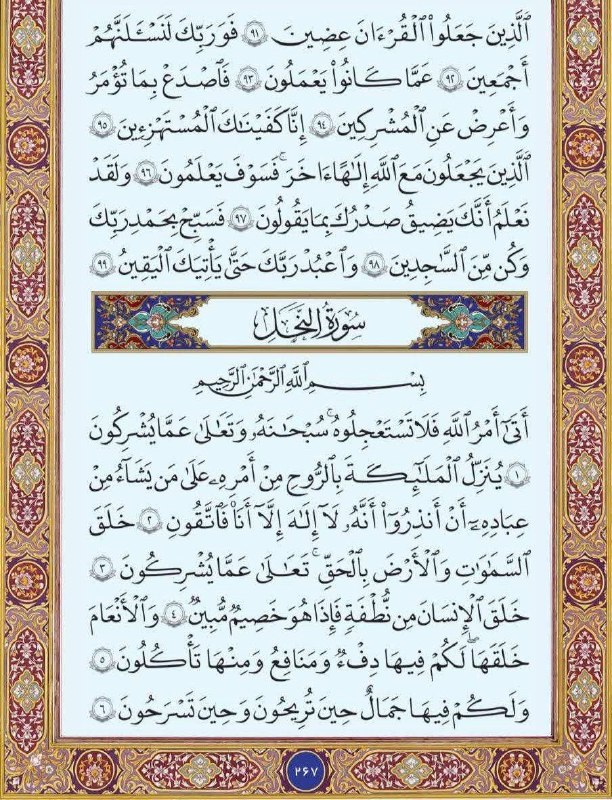 ٱلَّذِينَ جَعَلُوا۟ ٱلْقُرْءَانَ عِضِينَ ٩١ فَوَرَبِّكَ لَنَسْـَٔلَنَّهُمْ
أَجْمَعِينَ ٩٢ عَمَّا كَانُوا۟ يَعْمَلُونَ ٩٣ فَٱصْدَعْ بِمَا تُؤْمَرُ
وَأَعْرِضْ عَنِ ٱلْمُشْرِكِينَ ٩٤ إِنَّا كَفَيْنَـٰكَ ٱلْمُسْتَهْزِءِينَ ٩٥
ٱلَّذِينَ يَجْعَلُونَ مَعَ ٱللَّهِ إِلَـٰهًا ءَاخَرَ ۚ فَسَوْفَ يَعْلَمُونَ ٩٦ وَلَقَدْ
نَعْلَمُ أَنَّكَ يَضِيقُ صَدْرُكَ بِمَا يَقُولُونَ ٩٧ فَسَبِّحْ بِحَمْدِ رَبِّكَ
وَكُن مِّنَ ٱلسَّـٰجِدِينَ ٩٨ وَٱعْبُدْ رَبَّكَ حَتَّىٰ يَأْتِيَكَ ٱلْيَقِينُ ٩٩
سُورَةُ النَّحْلِ
بِسْمِ ٱللَّهِ ٱلرَّحْمَـٰنِ ٱلرَّحِيمِ
أَتَىٰٓ أَمْرُ ٱللَّهِ فَلَا تَسْتَعْجِلُوهُ ۚ سُبْحَـٰنَهُۥ وَتَعَـٰلَىٰ عَمَّا يُشْرِكُونَ
١ يُنَزِّلُ ٱلْمَلَـٰٓئِكَةَ بِٱلرُّوحِ مِنْ أَمْرِهِۦ عَلَىٰ مَن يَشَآءُ مِنْ
عِبَادِهِۦٓ أَنْ أَنذِرُوٓا۟ أَنَّهُۥ لَآ إِلَـٰهَ إِلَّآ أَنَا۠ فَٱتَّقُونِ ٢ خَلَقَ
ٱلسَّمَـٰوَٰتِ وَٱلْأَرْضَ بِٱلْحَقِّ ۚ تَعَـٰلَىٰ عَمَّا يُشْرِكُونَ ٣
خَلَقَ ٱلْإِنسَـٰنَ مِن نُّطْفَةٍ فَإِذَا هُوَ خَصِيمٌ مُّبِينٌ ٤ وَٱلْأَنْعَـٰمَ
خَلَقَهَا ۗ لَكُمْ فِيهَا دِفْءٌ وَمَنَـٰفِعُ وَمِنْهَا تَأْكُلُونَ ٥
وَلَكُمْ فِيهَا جَمَالٌ حِينَ تُرِيحُونَ وَحِينَ تَسْرَحُونَ ٦
٢٦٧